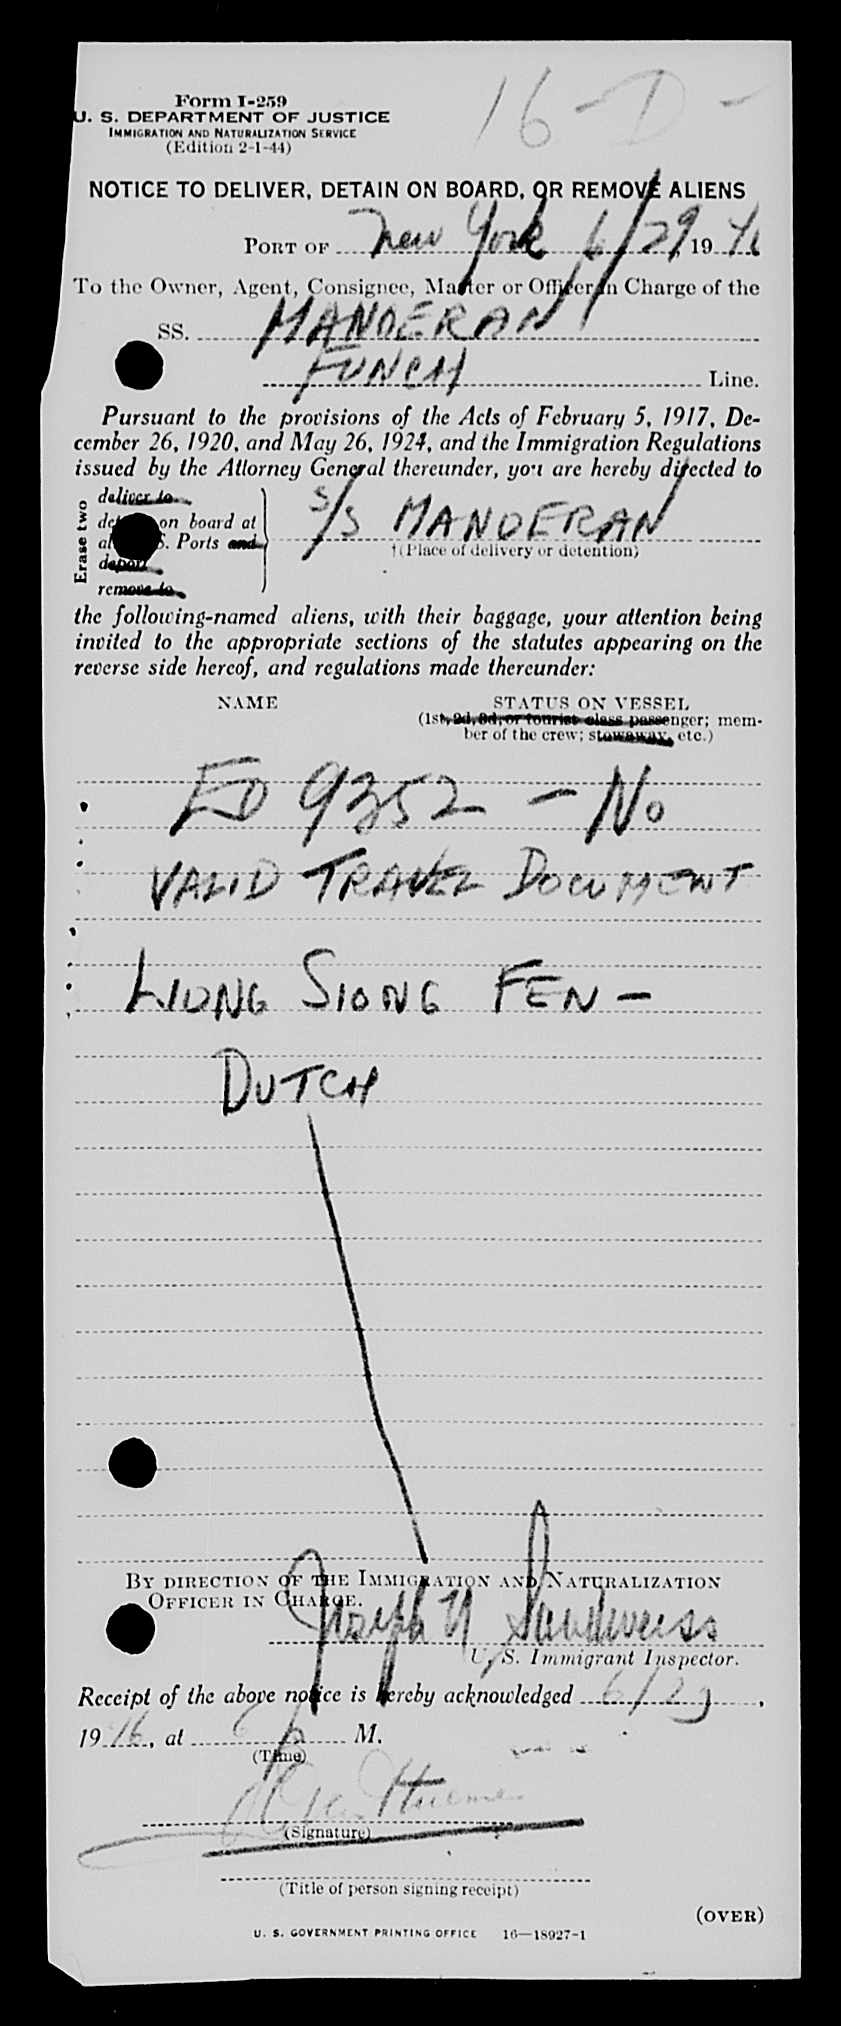 16-D-
Form I-259
U. S. DEPARTMENT OF JUSTICE
IMMIGRATION AND NATURALIZATION SERVICE
(Edition 2-1-44)
NOTICE TO DELIVER, DETAIN ON BOARD, OR REMOVE ALIENS
PORT OF New York 6/29, 1946
To the Owner, Agent, Consignee, Master or Officer in Charge of the
SS. MANDERAN
FUNCH Line.
Pursuant to the provisions of the Acts of February 5, 1917, De-
cember 26, 1920, and May 26, 1924, and the Immigration Regulations
issued by the Attorney General thereunder, you are hereby directed to
Erase two
deliver to
on board at
S. Ports and
deport
remove to
S/S MANDERAN
†(Place of delivery or detention)
the following-named aliens, with their baggage, your attention being
invited to the appropriate sections of the statutes appearing on the
reverse side hereof, and regulations made thereunder:
NAME STATUS ON VESSEL
(1st, 2d, 3d, or tourist class passenger; mem-
ber of the crew; stowaway, etc.)
ED 9352 - No
VALID TRAVEL DOCUMENT
LIONG SIONG FEN -
DUTCH
BY DIRECTION OF THE IMMIGRATION AND NATURALIZATION
OFFICER IN CHARGE.
Joseph N Sandweiss
U. S. Immigrant Inspector.
Receipt of the above notice is hereby acknowledged 6/29,
1946, at 6 p M.
(Time)
(Signature)
(Title of person signing receipt)
(OVER)
U. S. GOVERNMENT PRINTING OFFICE 16—18927-1